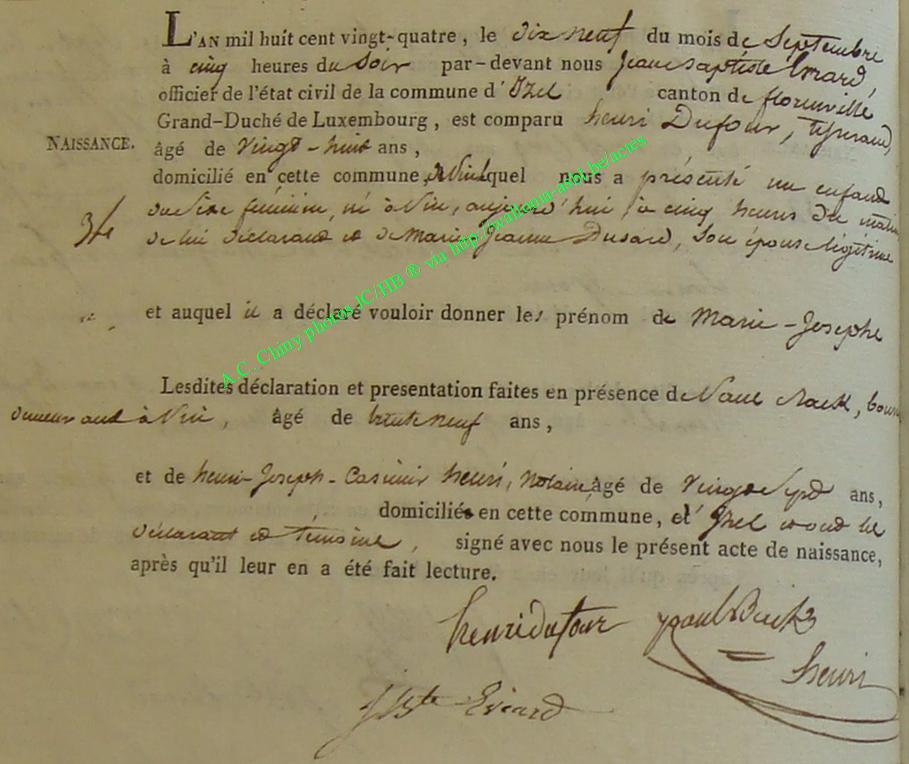 L'AN mil huit cent vingt-quatre, le dix neuf du mois de Septembre
à cinq heures du Soir par-devant nous Jean Baptiste Evrard,
officier de l'état civil de la commune d'Izel canton de florenville
Grand-Duché de Luxembourg, est comparu henri Dufour, tisserand,
NAISSANCE. âgé de vingt-huit ans,
domicilié en cette commune, à Vin lequel nous a présenté un enfant
du Sexe féminin, né à Vin, aujourd'hui à cinq heures du matin
de lui déclarant et de Marie Jeanne Dusard, Son épouse légitime
et auquel il a déclaré vouloir donner les prénom de Marie-Josephe
Lesdites déclaration et presentation faites en présence de
demeurant à Vin, âgé de trente neuf ans,
et de henri-Joseph-Casimir henri, notaire, âgé de vingt Sept ans,
domiciliés en cette commune, à Izel et ont les
déclarant et témoins, signé avec nous le présent acte de naissance,
après qu'il leur en a été fait lecture.
henri dufour
henri
Evrard
A.C. Chiny photos JC/HB ® via http://wallonia-asbl.be/actes